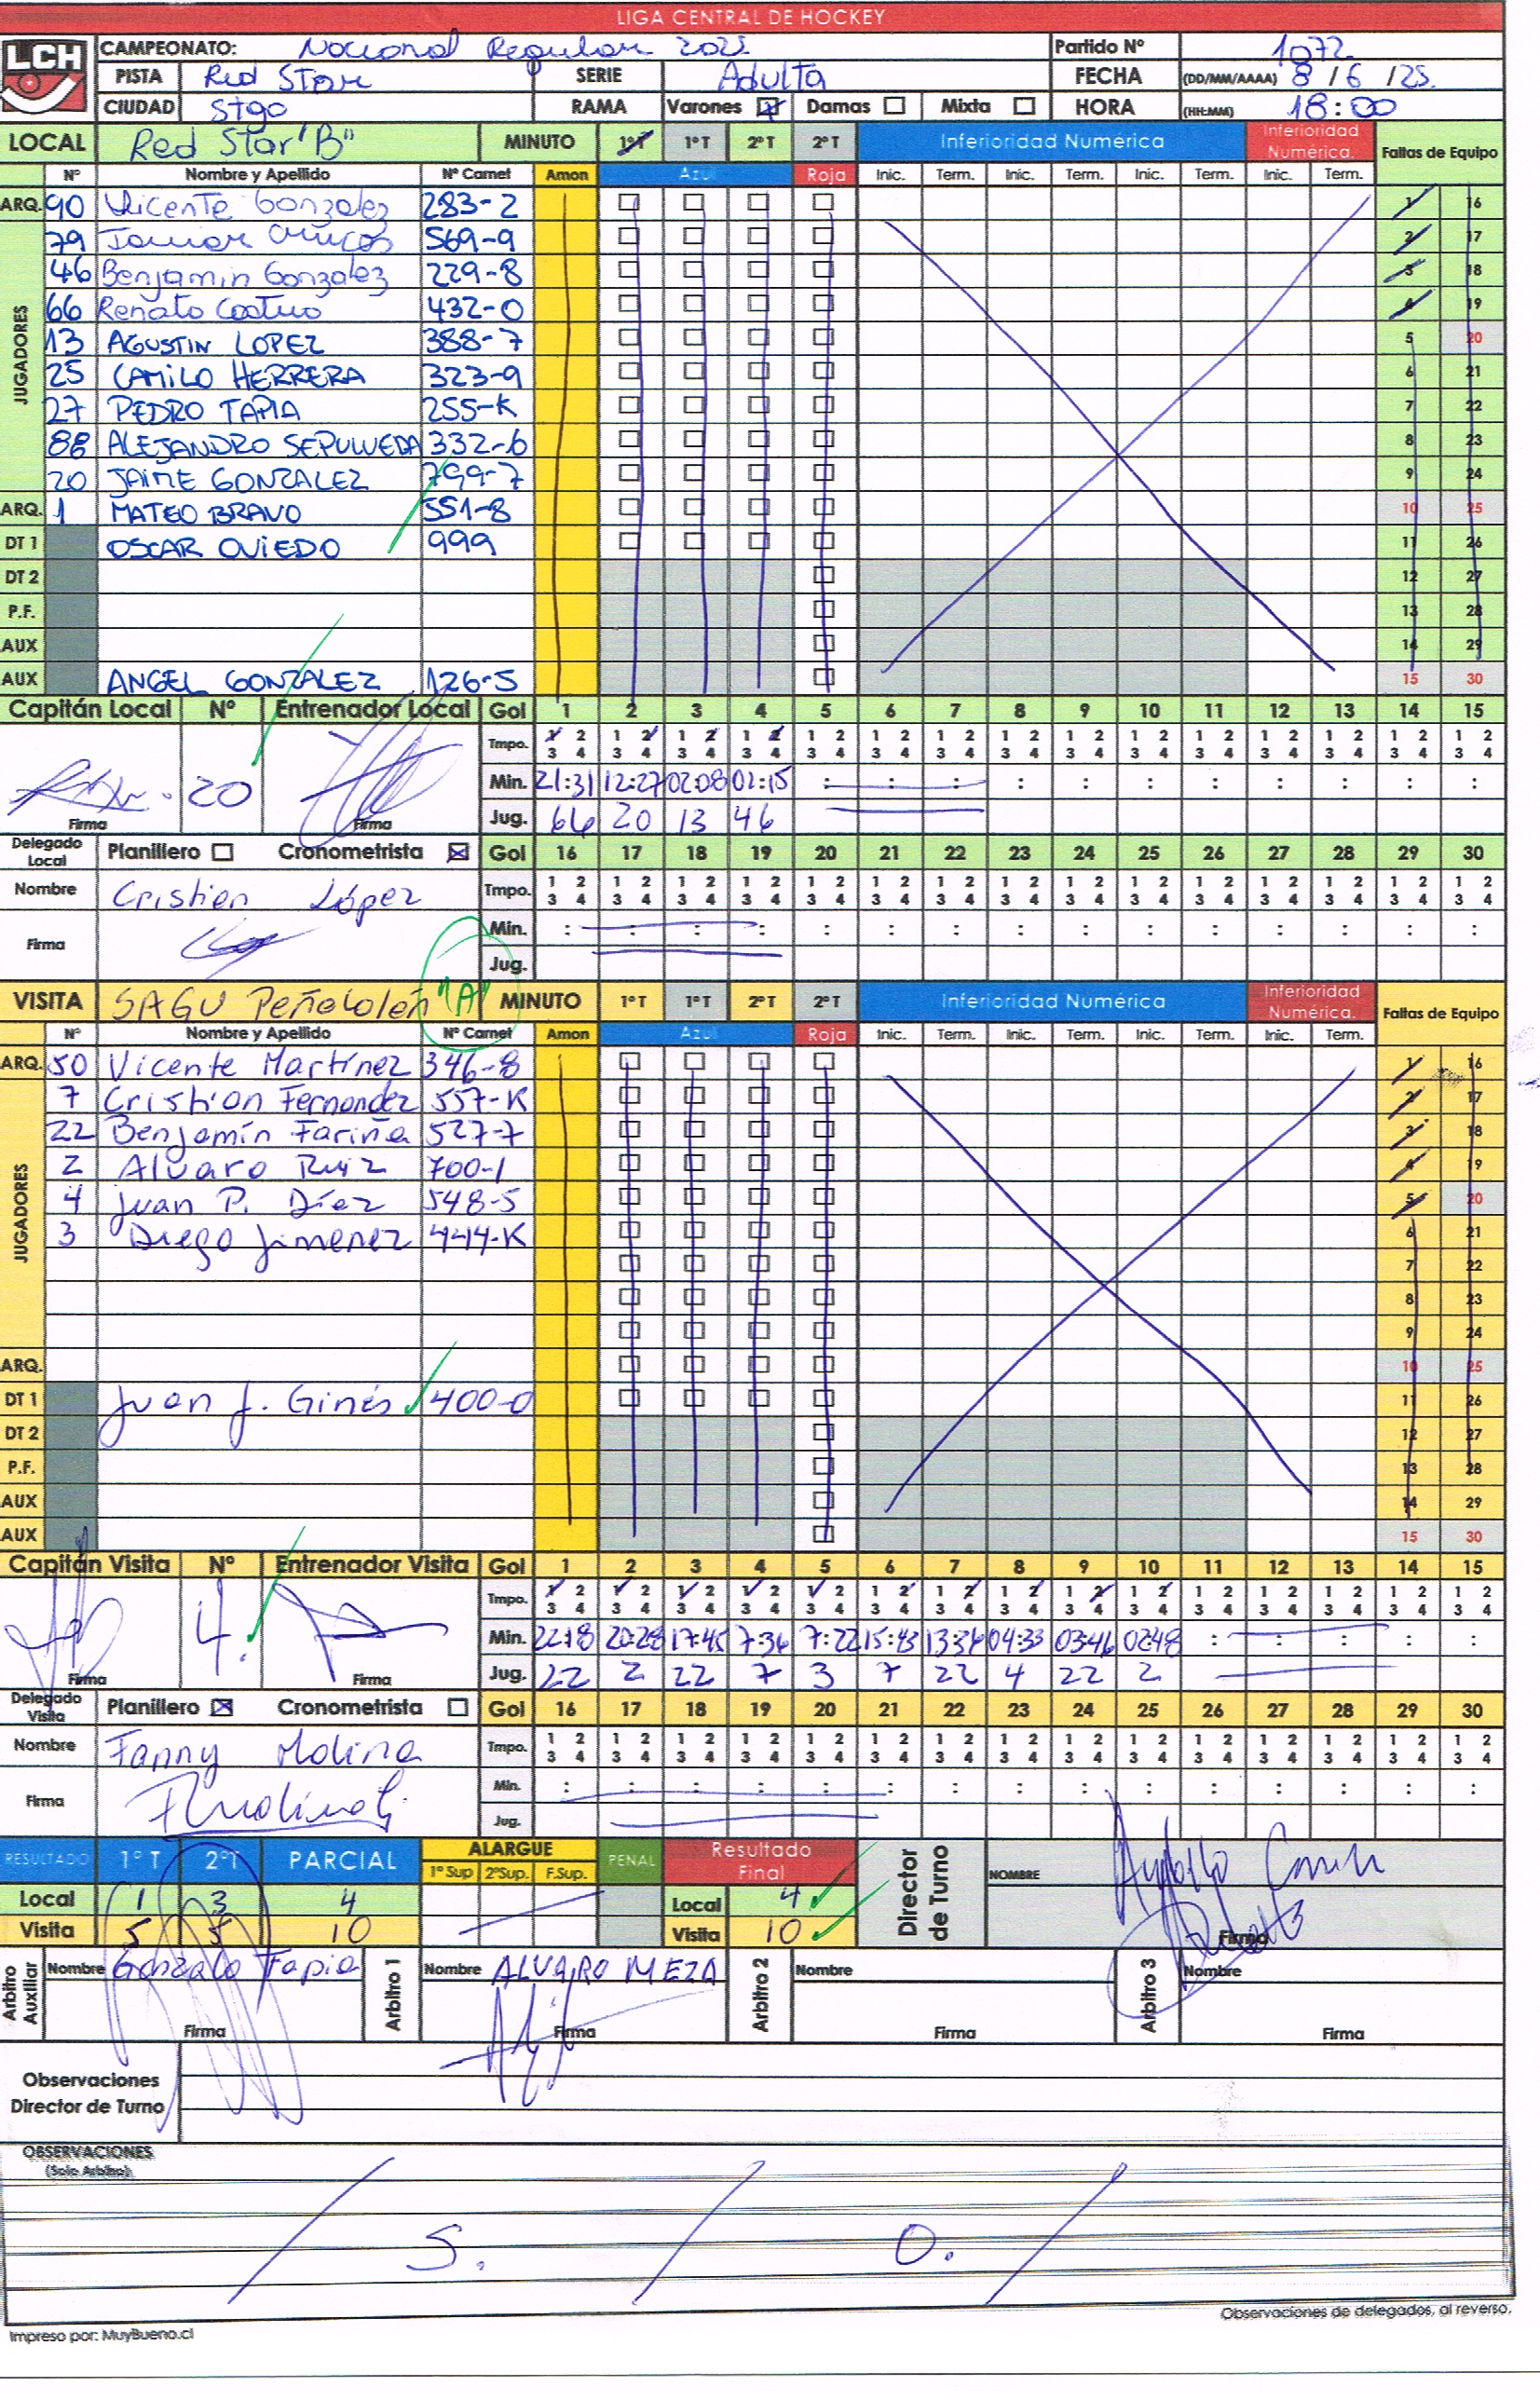 LIGA CENTRAL DE HOCKEY
LCH
CAMPEONATO: Nacional Regular 2025 Partido Nº 1072
PISTA Red Star SERIE Adulta FECHA (DD/MM/AAAA) 8 / 6 / 25.
CIUDAD Stgo RAMA Varones Damas Mixta HORA (HH:MM) 18:00
LOCAL Red Star "B" MINUTO 1ºT 1ºT 2ºT 2ºT Inferioridad Numérica Inferioridad Numérica. Faltas de Equipo
Nº Nombre y Apellido Nº Carnet Amon Azul Roja Inic. Term. Inic. Term. Inic. Term. Inic. Term.
JUGADORES
ARQ. 90 Vicente Gonzalez 283-2 1 16
79 569-9 2 17
46 Benjamin Gonzalez 229-8 3 18
66 Renato Castro 432-0 4 19
13 AGUSTIN LOPEZ 388-7 5 20
25 CAMILO HERRERA 323-9 6 21
27 PEDRO TAPIA 255-K 7 22
88 ALEJANDRO SEPULVEDA 332-6 8 23
20 JAIME GONZALEZ 799-7 9 24
ARQ. 1 MATEO BRAVO 551-8 10 25
DT 1 OSCAR OVIEDO 999 11 26
DT 2 12 27
P.F. 13 28
AUX 14 29
AUX ANGEL GONZALEZ 126-5 15 30
Capitán Local Nº Entrenador Local Gol 1 2 3 4 5 6 7 8 9 10 11 12 13 14 15
Tmpo. 1 2 1 2 1 2 1 2 1 2 1 2 1 2 1 2 1 2 1 2 1 2 1 2 1 2 1 2 1 2
3 4 3 4 3 4 3 4 3 4 3 4 3 4 3 4 3 4 3 4 3 4 3 4 3 4 3 4 3 4
20 Min. 21:31 12:27 02:08 01:15 : : : : : : : : : : :
Firma Firma Jug. 66 20 13 46
Delegado Local Planillero Cronometrista Gol 16 17 18 19 20 21 22 23 24 25 26 27 28 29 30
Nombre Cristian López Tmpo. 1 2 1 2 1 2 1 2 1 2 1 2 1 2 1 2 1 2 1 2 1 2 1 2 1 2 1 2 1 2
3 4 3 4 3 4 3 4 3 4 3 4 3 4 3 4 3 4 3 4 3 4 3 4 3 4 3 4 3 4
Firma Min. : : : : : : : : : : : : : : :
Jug.
VISITA SAGU Peñalolén "A" MINUTO 1ºT 1ºT 2ºT 2ºT Inferioridad Numérica Inferioridad Numérica. Faltas de Equipo
Nº Nombre y Apellido Nº Carnet Amon Azul Roja Inic. Term. Inic. Term. Inic. Term. Inic. Term.
JUGADORES
ARQ. 50 Vicente Martínez 346-8 1 16
7 Cristian Fernandez 557-K 2 17
22 Benjamín Fariña 527-7 3 18
2 Alvaro Ruiz 700-1 4 19
4 Juan P. Díez 548-5 5 20
3 Diego Jimenez 444-K 6 21
7 22
8 23
9 24
ARQ. 10 25
DT 1 Juan J. Ginés 400-0 11 26
DT 2 12 27
P.F. 13 28
AUX 14 29
AUX 15 30
Capitán Visita Nº Entrenador Visita Gol 1 2 3 4 5 6 7 8 9 10 11 12 13 14 15
Tmpo. 1 2 1 2 1 2 1 2 1 2 1 2 1 2 1 2 1 2 1 2 1 2 1 2 1 2 1 2 1 2
3 4 3 4 3 4 3 4 3 4 3 4 3 4 3 4 3 4 3 4 3 4 3 4 3 4 3 4 3 4
4. Min. 22:18 20:28 17:45 7:36 7:22 15:43 13:34 04:33 03:46 02:48 : : : : :
Firma Firma Jug. 22 2 22 7 3 7 22 4 22 2
Delegado Visita Planillero Cronometrista Gol 16 17 18 19 20 21 22 23 24 25 26 27 28 29 30
Nombre Fanny Molina Tmpo. 1 2 1 2 1 2 1 2 1 2 1 2 1 2 1 2 1 2 1 2 1 2 1 2 1 2 1 2 1 2
3 4 3 4 3 4 3 4 3 4 3 4 3 4 3 4 3 4 3 4 3 4 3 4 3 4 3 4 3 4
Firma Min. : : : : : : : : : : : : : : :
Jug.
RESULTADO 1º T 2ºT PARCIAL ALARGUE 1º Sup 2ºSup. F.Sup. PENAL Resultado Final Director de Turno NOMBRE
Local 1 3 4 Local 4
Visita 5 5 10 Visita 10 Firma
Arbitro Auxiliar Nombre Gonzalo Tapia Arbitro 1 Nombre ALVARO MEZA Arbitro 2 Nombre Arbitro 3 Nombre
Firma Firma Firma Firma
Observaciones
Director de Turno
OBSERVACIONES
(Solo Arbitro)
S. O.
Observaciones de delegados, al reverso.
Impreso por: MuyBueno.cl